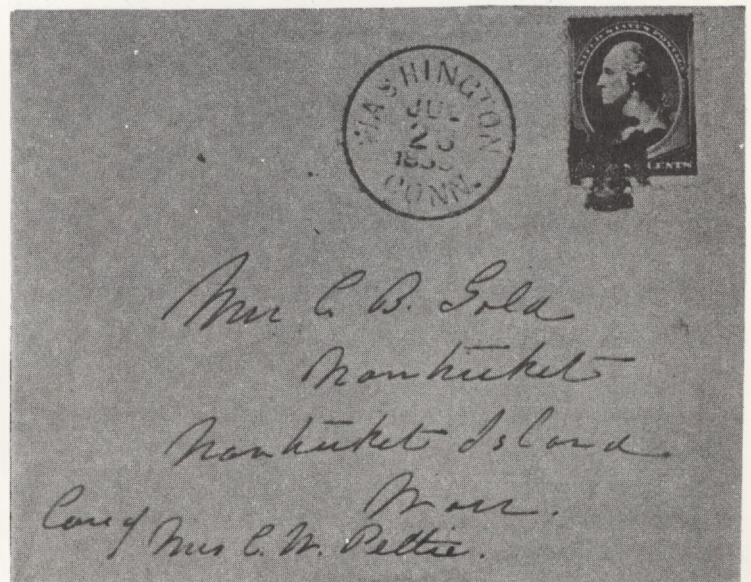 WASHINGTON
JUL
CONN.
UNITED STATES POSTAGE
CENTS
Mrs C. B. Gold
Nantucket
Nantucket Island
Mass.
Care of
Mrs C. W. Pettie.